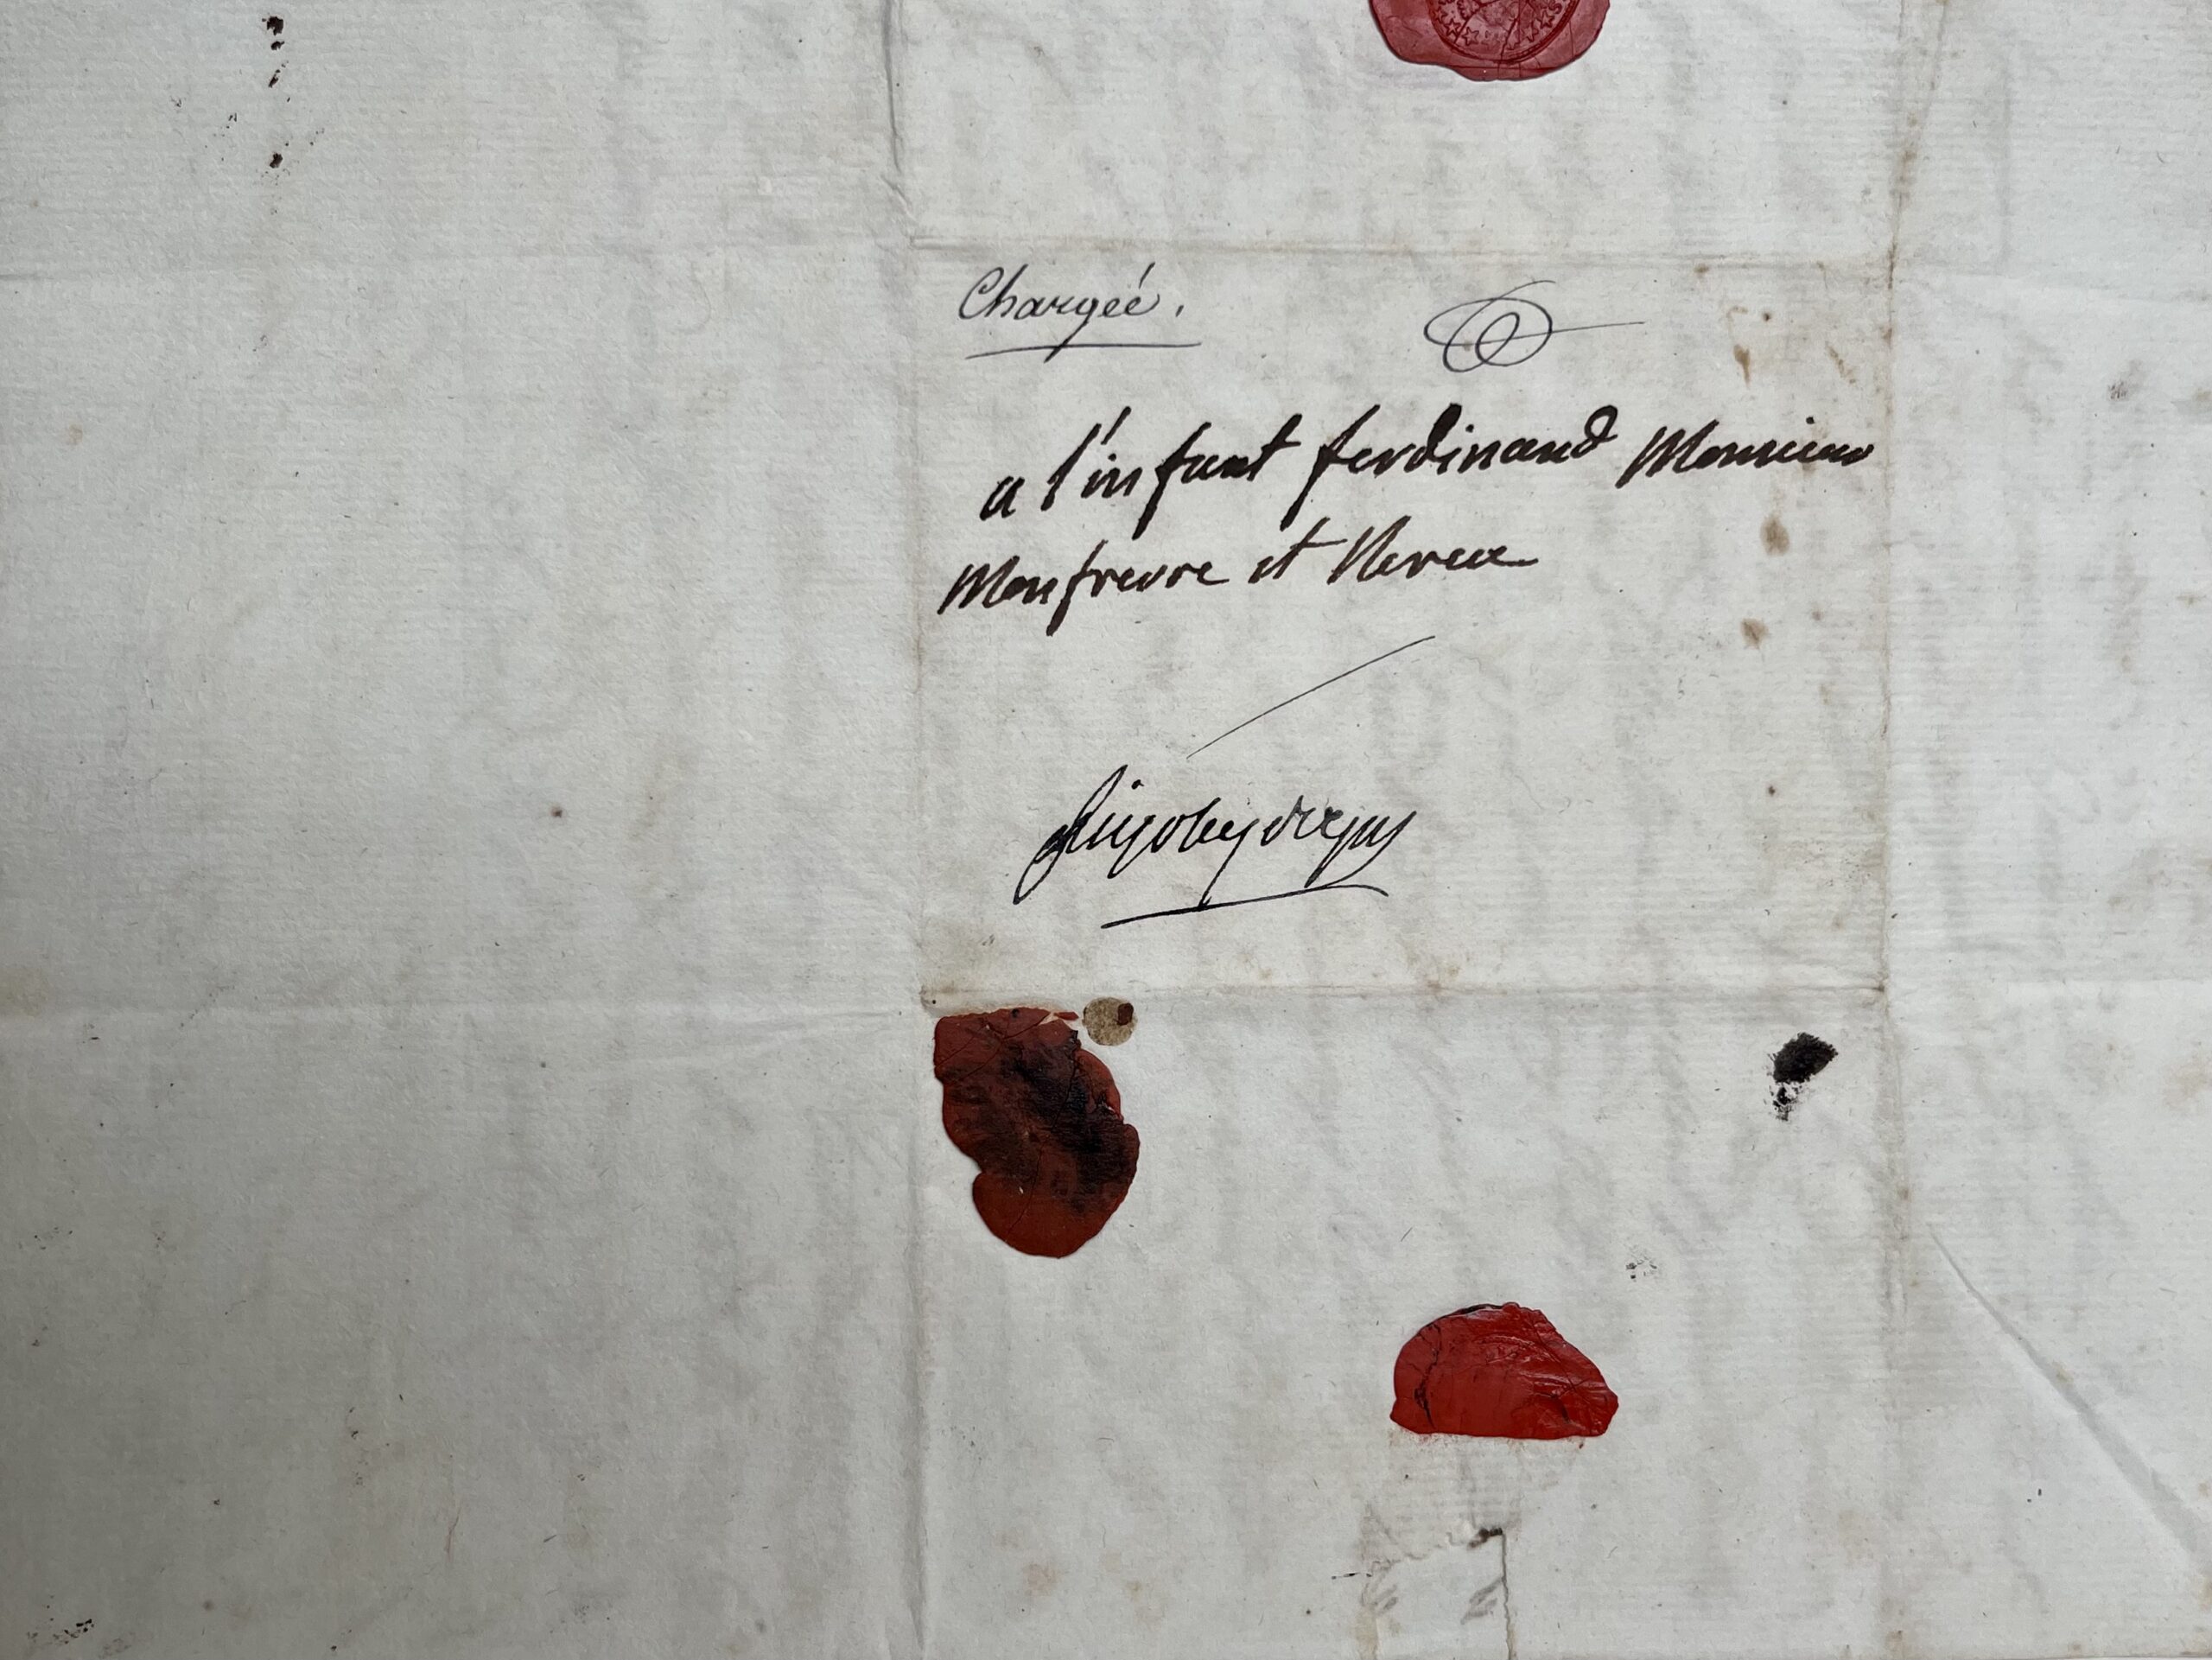 Chargéé.
a l'infant ferdinand Monsieur
Monfreore et Neveu